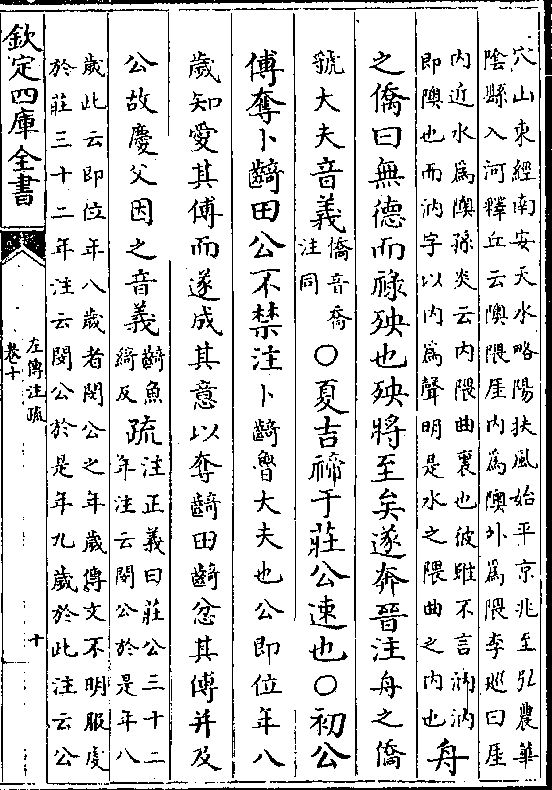 穴山東經南安天水略陽扶風始平京兆至弘農華
陰縣入河釋丘云隩隈厓内為隩外為隈李廵曰厓
内近水為隩孫炎云内隈曲裏也彼雖不言汭汭
即隩也而汭字以内為聲明是水之隈曲之内也舟
之僑曰無德而禄殃也殃將至矣遂奔晉注舟之僑
虢大夫音義僑音喬注同○夏吉禘于莊公速也○初公
傅奪卜齮田公不禁注卜齮魯大夫也公即位年八
歲知愛其傅而遂成其意以奪齮田齮忿其傅并及
公故慶父因之音義齮魚綺反疏注正義曰莊公三十二年注云閔公於是年八
歲此云即位年八歲者閔公之年歲傳文不明服虔
於莊三十二年注云閔公於是年九歲於此注云公
欽定四庫全書
左傳注疏
卷十
十